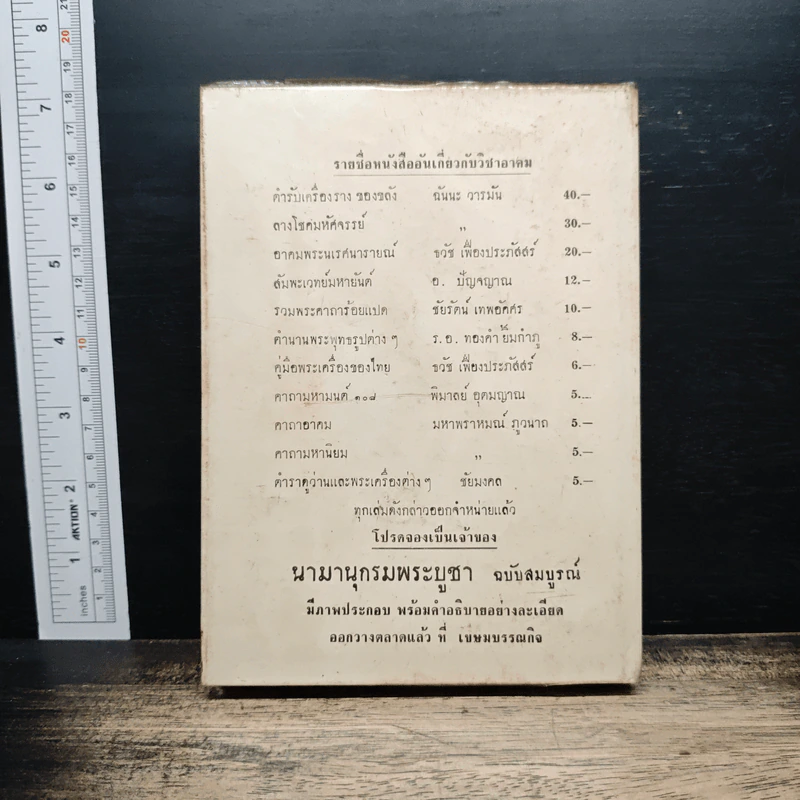 รายชื่อหนังสืออันเกี่ยวกับวิชาอาคม
ตำรับเครื่องราง ของขลัง ฉันนะ วารมัน 40.—
ลางโชคมหัศจรรย์ ,, 30.—
อาคมพระนเรศนารายณ์ ธวัช เฟื่องประภัสสร์ 20.—
สัมพะเวทย์มหายันต์ อ. ปัญจญาณ 12.—
รวมพระคาถาร้อยแปด ชัยรัตน์ เทพอัศศร 10.—
ตำนานพระพุทธรูปต่าง ๆ ร.อ. ทองคำ ยิ้มกำภู 8.—
คู่มือพระเครื่องของไทย ธวัช เฟื่องประภัสสร์ 6.—
คาถามหามนต์ ๑๐๘ พิมาลย์ อุตมญาณ 5.—
คาถาอาคม มหาพราหมณ์ ภูวนาถ 5.—
คาถามหานิยม ,, 5.—
ตำราดูว่านและพระเครื่องต่าง ๆ ชัยมงคล 5.—
ทุกเล่มดังกล่าวออกจำหน่ายแล้ว
โปรดจองเป็นเจ้าของ
นามานุกรมพระบูชา ฉบับสมบูรณ์
มีภาพประกอบ พร้อมคำอธิบายอย่างละเอียด
ออกวางตลาดแล้ว ที่ เขษมบรรณกิจ
8
7
6
5
4
3
2
1
inches
AKTION
21
20
19
18
17
16
15
14
13
12
11
10
9
8
7
6
5
4
3
2
1